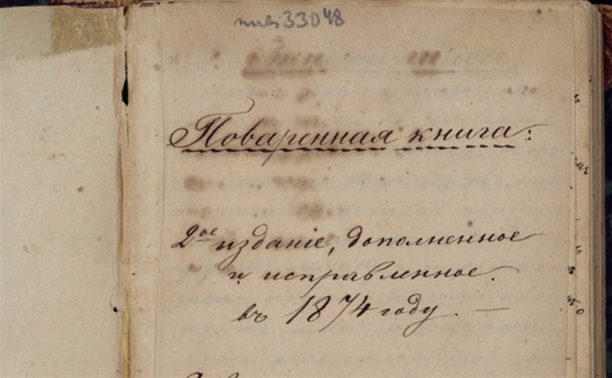 пив33048
Поваренная книга:
2ое изданіе, дополненное
и исправленное.
въ 1874 году. —